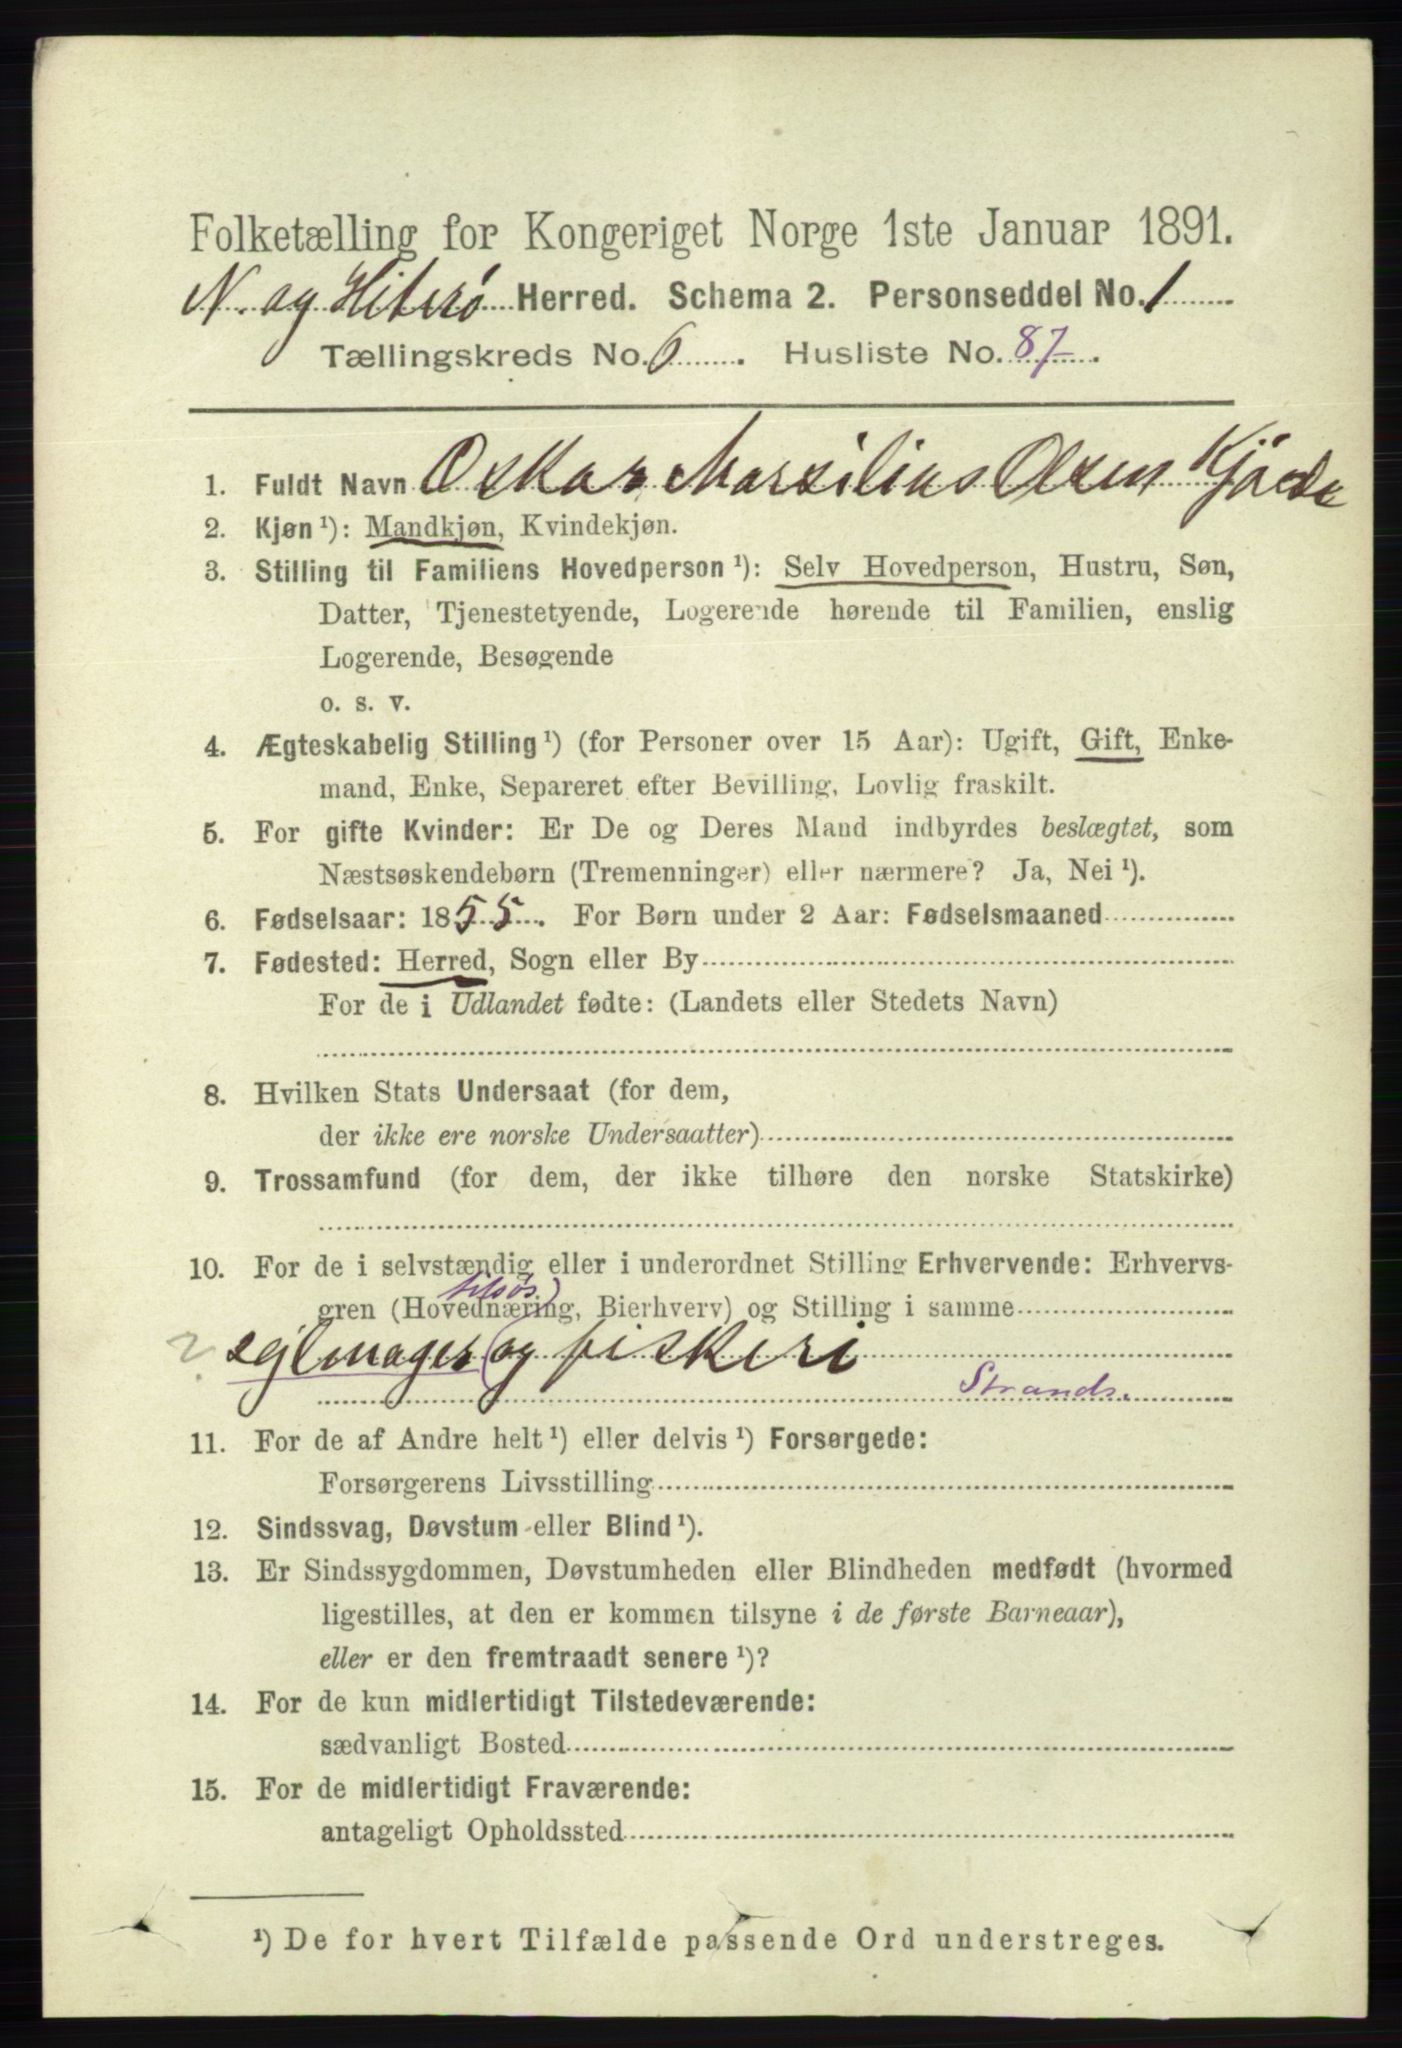 Folketælling for Kongeriget Norge 1ste Januar 1891.
N. og Hiterø Herred. Schema 2. Personseddel No. 1
Tællingskreds No. 6. Husliste No. 87.
1. Fuldt Navn Oskar Marsilius Olsen
2. Kjøn ¹): Mandkjøn, Kvindekjøn.
3. Stilling til Familiens Hovedperson ¹): Selv Hovedperson, Hustru, Søn,
Datter, Tjenestetyende, Logerende hørende til Familien, enslig
Logerende, Besøgende
o. s. v.
4. Ægteskabelig Stilling ¹) (for Personer over 15 Aar): Ugift, Gift, Enke-
mand, Enke, Separeret efter Bevilling, Lovlig fraskilt.
5. For gifte Kvinder: Er De og Deres Mand indbyrdes beslægtet, som
Næstsøskendebørn (Tremenninger) eller nærmere? Ja, Nei ¹).
6. Fødselsaar: 1855. For Børn under 2 Aar: Fødselsmaaned
7. Fødested: Herred, Sogn eller By
For de i Udlandet fødte: (Landets eller Stedets Navn)
8. Hvilken Stats Undersaat (for dem,
der ikke ere norske Undersaatter)
9. Trossamfund (for dem, der ikke tilhøre den norske Statskirke)
10. For de i selvstændig eller i underordnet Stilling Erhvervende: Erhvervs-
tilsøs)
gren (Hovednæring, Bierhverv) og Stilling i samme
? sejlmager (og fiskeri
Strands.
11. For de af Andre helt ¹) eller delvis ¹) Forsørgede:
Forsørgerens Livsstilling
12. Sindssvag, Døvstum eller Blind ¹).
13. Er Sindssygdommen, Døvstumheden eller Blindheden medfødt (hvormed
ligestilles, at den er kommen tilsyne i de første Barneaar),
eller er den fremtraadt senere ¹)?
14. For de kun midlertidigt Tilstedeværende:
sædvanligt Bosted
15. For de midlertidigt Fraværende:
antageligt Opholdssted
¹) De for hvert Tilfælde passende Ord understreges.